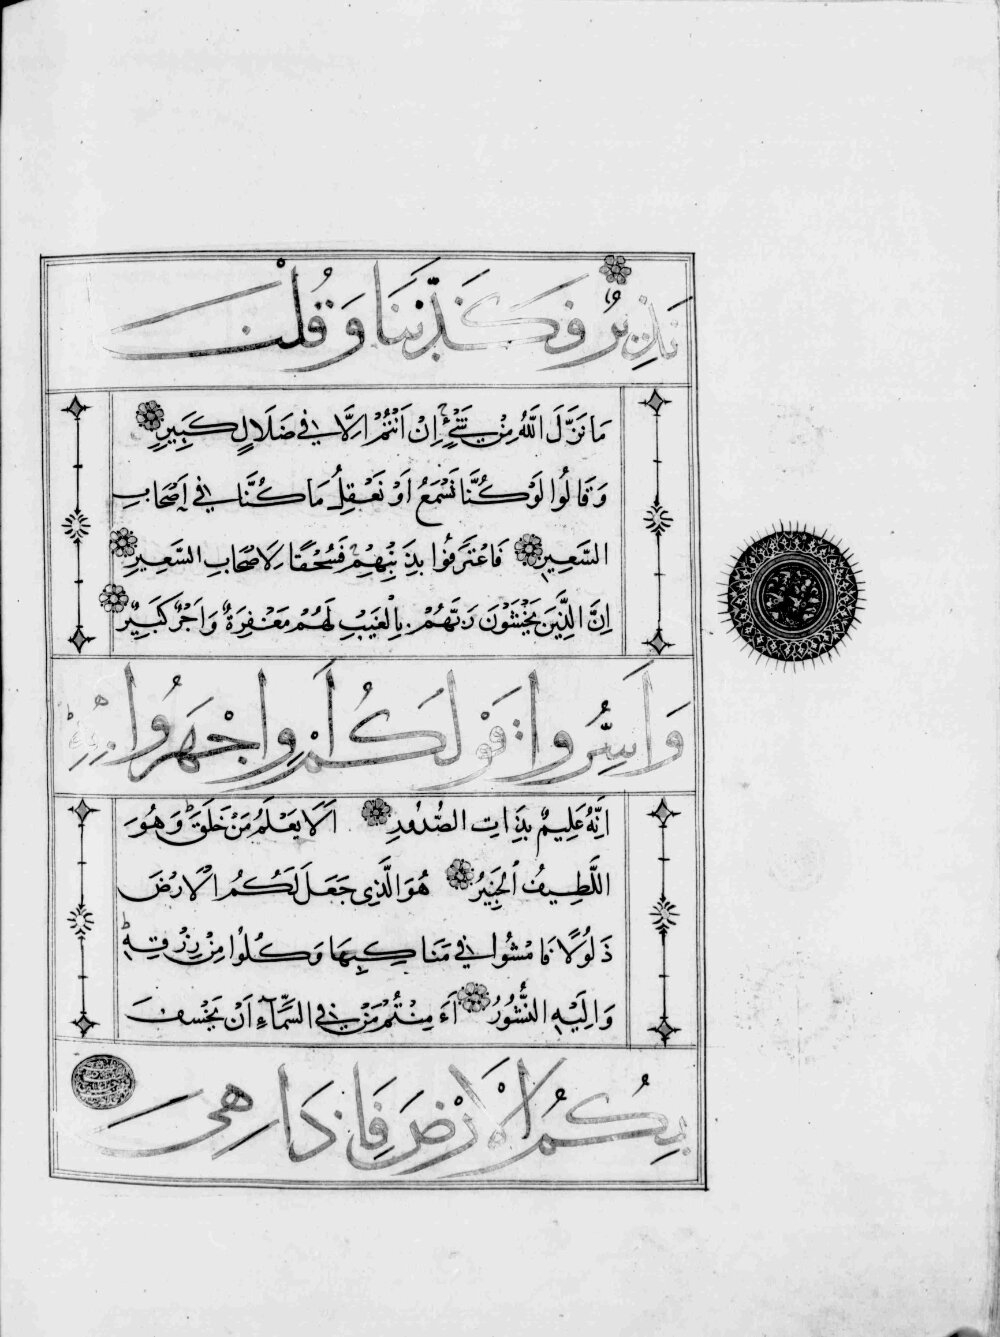 نَذِيرٌ فَكَذَّبْنَا وَقُلْنَا
مَا نَزَّلَ اللَّهُ مِنْ شَيْءٍ إِنْ أَنْتُمْ إِلَّا فِي ضَلَالٍ كَبِيرٍ
وَقَالُوا لَوْ كُنَّا نَسْمَعُ أَوْ نَعْقِلُ مَا كُنَّا فِي أَصْحَابِ
السَّعِيرِ فَاعْتَرَفُوا بِذَنْبِهِمْ فَسُحْقًا لِأَصْحَابِ السَّعِيرِ
إِنَّ الَّذِينَ يَخْشَوْنَ رَبَّهُمْ بِالْغَيْبِ لَهُمْ مَغْفِرَةٌ وَأَجْرٌ كَبِيرٌ
وَأَسِرُّوا قَوْلَكُمْ أَوِ اجْهَرُوا بِهِ
إِنَّهُ عَلِيمٌ بِذَاتِ الصُّدُورِ أَلَا يَعْلَمُ مَنْ خَلَقَ وَهُوَ
اللَّطِيفُ الْخَبِيرُ هُوَ الَّذِي جَعَلَ لَكُمُ الْأَرْضَ
ذَلُولًا فَامْشُوا فِي مَنَاكِبِهَا وَكُلُوا مِنْ رِزْقِهِ
وَإِلَيْهِ النُّشُورُ ءَأَمِنْتُمْ مَنْ فِي السَّمَاءِ أَنْ يَخْسِفَ
بِكُمُ الْأَرْضَ فَإِذَا هِيَ